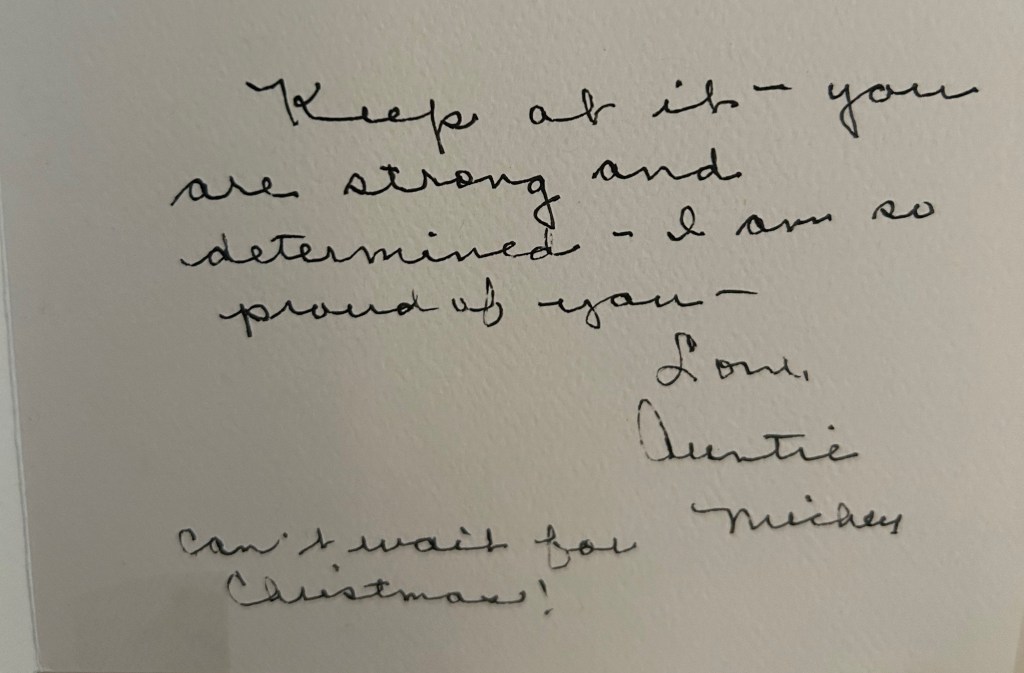 Keep at it - you
are strong and
determined - I am so
proud of you -
Love,
Auntie
Mickey
Can't wait for
Christmas!